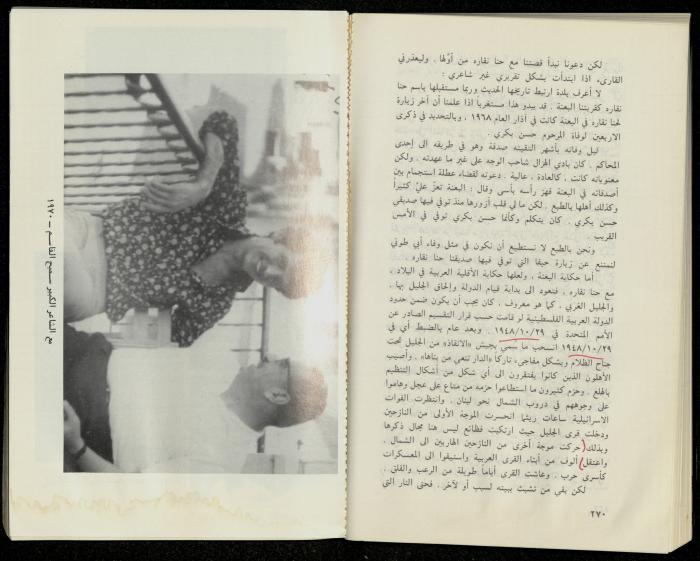 لكن دعونا نبدأ قصتنا مع حنا نقاره من أولها . وليعذرني
القارىء اذا ابتدأت بشكل تقريري غير شاعري :
لا أعرف بلدة ارتبط تاريخها الحديث وربما مستقبلها باسم حنا
نقاره كقريتنا البعنة . قد يبدو هذا مستغرباً اذا علمنا أن آخر زيارة
لحنا نقاره في البعنة كانت في آذار العام ١٩٦٨ ، وبالتحديد في ذكرى
الاربعين لوفاة المرحوم حسن بكري .
قبل وفاته بأشهر التقيته صدفة وهو في طريقه الى إحدى
المحاكم . كان بادي الهزال شاحب الوجه على غير ما عهدته . ولكن
معنوياته كانت ، كالعادة ، عالية . دعوته لقضاء عطلة استجمام بين
أصدقائه في البعنة فهز رأسه بأسى وقال : البعنة تعزّ عليّ كثيراً
وكذلك أهلها بالطبع . لكن ما لي قلب أزورها منذ توفي فيها صديقي
حسن بكري . كان يتكلم وكأنما حسن بكري توفي في الأمس
القريب .
ونحن بالطبع لا نستطيع أن نكون في مثل وفاء أبي طوني
لنمتنع عن زيارة حيفا التي توفي فيها صديقنا حنا نقاره .
أما حكاية البعنة ، ولعلها حكاية الأقلية العربية في البلاد ،
مع حنا نقاره ، فتعود الى بداية قيام الدولة وإلحاق الجليل بها .
والجليل الغربي ، كما هو معروف ، كان يجب أن يكون ضمن حدود
الدولة العربية الفلسطينية لو قامت حسب قرار التقسيم الصادر عن
الأمم المتحدة في ١٩٤٨/١٠/٢٩ . وبعد عام بالضبط أي في
١٩٤٨/١٠/٢٩ انسحب ما سمّي بجيش «الانقاذ» من الجليل تحت
جناح الظلام وبشكل مفاجىء تاركاً «الدار تنعى من بناها» . وأصيب
الأهلون الذين كانوا يفتقرون الى أي شكل من أشكال التنظيم
بالهلع . وحزم كثيرون ما استطاعوا حزمه من متاع على عجل وهاموا
على وجوههم في دروب الشمال نحو لبنان . وانتظرت القوات
الاسرائيلية ساعات ريثما انحسرت الموجة الأولى من النازحين
ودخلت قرى الجليل حيث ارتكبت فظائع ليس هنا مجال ذكرها
وبذلك حركت موجة أخرى من النازحين الهاربين الى الشمال .
واعتقل ألوف من أبناء القرى العربية واستيقوا الى المعسكرات
كأسرى حرب . وعاشت القرى أياماً طويلة من الرعب والقلق .
لكن بقي من تشبث ببيته لسبب أو لآخر . فحتى النار التي
٢٧٠
مع الشاعر الكبير سميح القاسم — ١٩٧٠